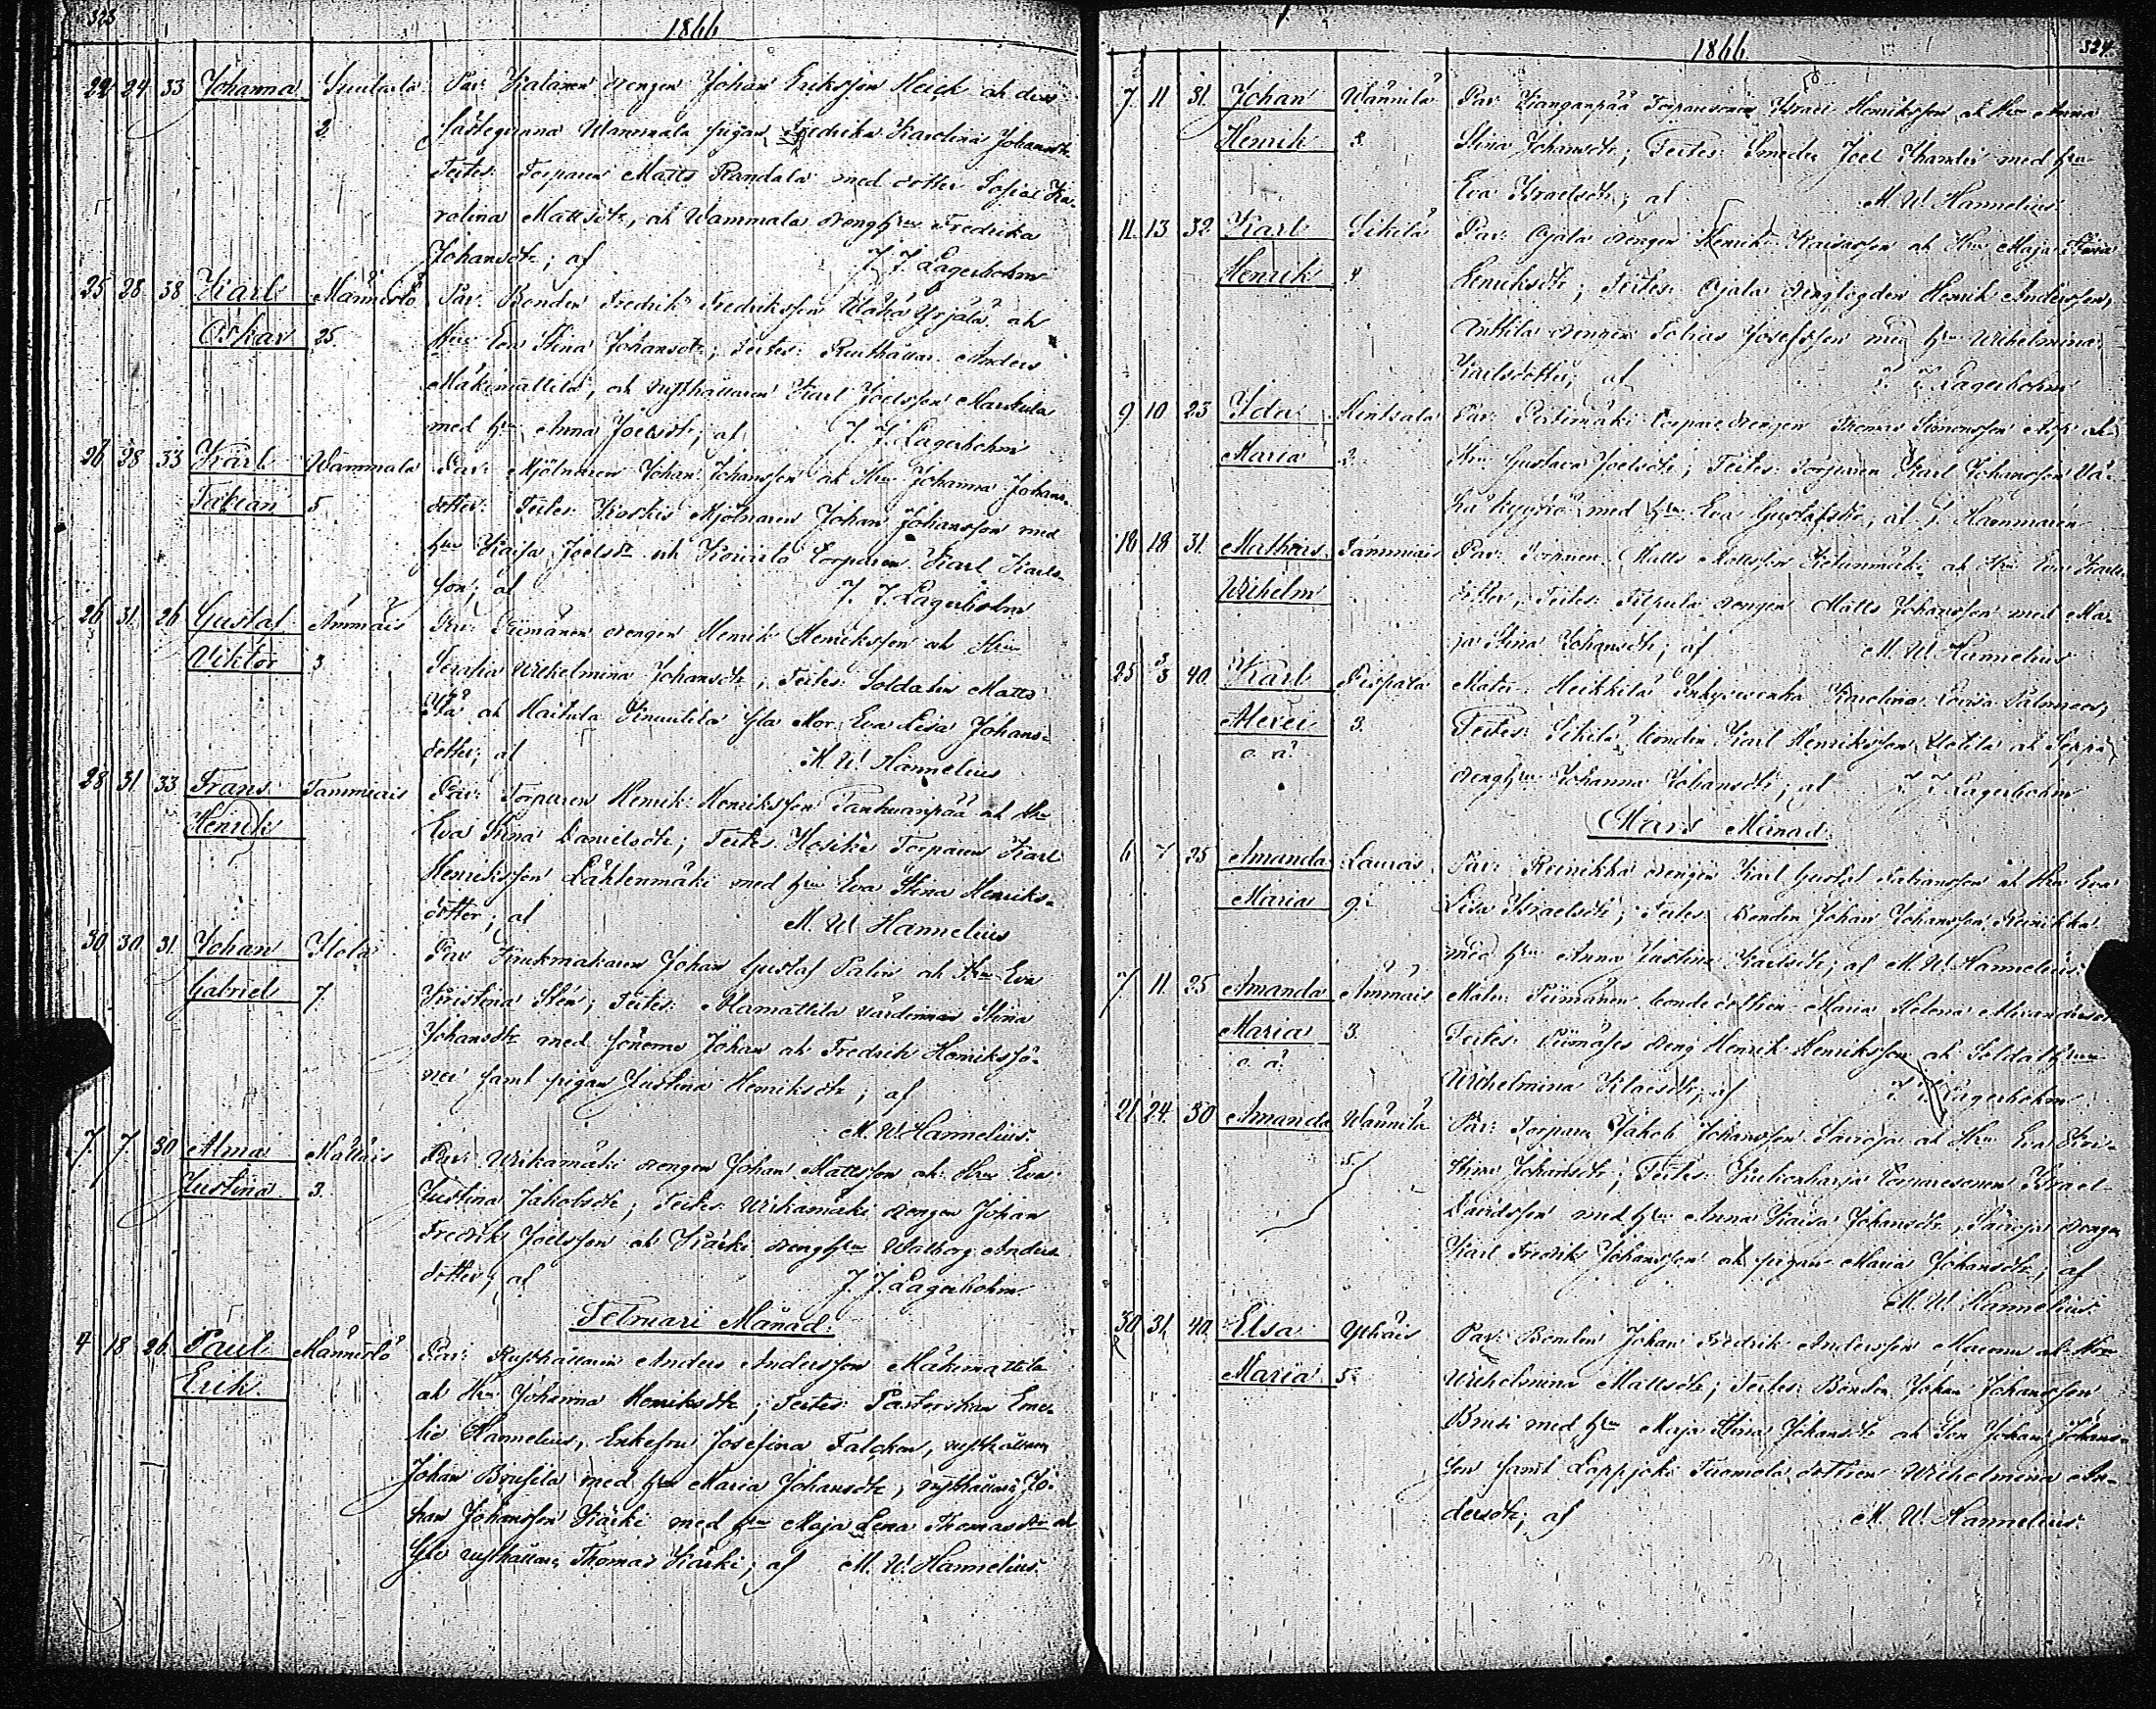 323
1866
22 24 33 Johanna Suutala Par: Katanen drengen Johan Eriksson Heick och dess
2. fästeqvinna Wammala pigan Fredrika Karolina Johansdtr
Testes: Torparen Matts Randala med dotter Sofia Ka-
rolina Mattsdtr, och Wammala drengh:n Fredrika
Johansdtr; af J. J. Lagerbohm
25 28 38 Karl Männistö Par: Bonden Fredrik Fredriksson Wähä Yrjälä och
Oskar 25. H:u Eva Stina Johansdtr; Testes: Rusthållar. Anders
Mäkimattila, och rusthållaren Karl Joelsson Markula
med h:u Anna Joelsdtr; af J. J. Lagerbohm
26 28 33 Karl Wammala Par: Mjölnaren Johan Johansson och H:u Johanna Johans-
Fabian 5 dotter: Testes: Koskis Mjölnaren Johan Johansson med
h:u Kaisa Joelsdtr och torparen Karl Karls-
son; af J. J. Lagerbohm
26 31 26 Gustaf Ämmäis Par: Piimänen drengen Henrik Henriksson och H:u
Viktor 3 Serafia Wilhelmina Johansdtr, Testes: Soldaten Matts
och Eva Lisa Johans-
dotter; af M. W. Hannelius
28 31 33 Frans Tammiais Par: Torparen Henrik Henriksson Panhuanpää och H:u
Henrik Eva Stina Danielsdtr; Testes: Torparen Karl
Henriksson Lähtenmäki med h:u Eva Stina Henriks-
dotter; af M. W. Hannelius
30 30 31 Johan Ilola Par: Krukmakaren Johan Gustaf Palin och H:u Eva
Gabriel 7. Kristina Stén; Testes: Alamattila värdinnan Stina
Johansdtr med sönerne Johan och Fredrik Henriksso-
ner samt pigan Justina Henriksdtr; af
M. W. Hannelius.
7. 7. 30 Alma Mälläis Par: Wirkamäki drengen Johan Mattsson och H:u Eva
Justina 3. Justina Jakobsdtr; Testes: Wirkamäki drengen Johan
Fredrik Joelsson och Kärki drengh:u Walborg Anders-
dotter; af J. J. Lagerbohm
Februari Månad.
4 18 26 Paul Männistö Par: Rusthållaren Anders Andersson Mäkimattila
Erik. och H:u Johanna Henriksdtr; Testes: Pastorskan Eme-
lie Hannelius, Enkefru Josefina Falckon, rusthållaren
Johan Brusila med h:u Maria Johansdtr, rusthållare Jo-
han Johansson Kärki med h:u Maja Lena Thomasdtr och
rusthållare Thomas Kärki; af M. W. Hannelius.
324.
1866
7 11 31. Johan Wännilä Par: Kanganpää Torparsonen Israel Henriksson och H:u Anna
Henrik 3. Stina Johansdtr; Testes: Smeden Joel med h:u
Eva Israelsdtr; af M. W. Hannelius.
11. 13 32. Karl Sikilä Par: Ojala drengen Henrik och H:u Maja Stina
Henrik 4 Henriksdtr; Testes: Ojala Henrik Andersson,
Anttila drengen Tobias Josefsson med h:u Wilhelmina
Karlsdotter; af J. J. Lagerbohm
9 10 23 Ida Hintsala Par: Thomas Simonsson och
Maria 2. H:u Gustava Joelsdtr; Testes: Torparen Karl Johansson
med h:u Eva Gustafsdtr; af J. Hammarén
18 18 31. Mathias Tammiais Par: Torparen Matts Mattsson och H:u Eva Karls-
Wilhelm dotter; Testes: drengen Matts Johansson med Ma-
ja Stina Johansdtr; af M. W. Hannelius
25 3/3 40. Karl Pispala Mater: Heikkilä Karolina Lovisa Palmroos,
Alexei 3. Testes: Sikilä bonden Karl Henriksson Uotila och Seppä
o. ä. drengh:u Johanna Johansdtr; af J. J. Lagerbohm
Mars Månad.
6 7 25 Amanda Lauras Par: Reinikka drengen Karl Gustaf och H:u Eva
Maria 9. Lisa Israelsdtr; Testes: Bonden Johan Johansson Reinikka
med h:u Anna Justina Karlsdtr; af M. W. Hannelius.
7. 11. 25 Amanda Ämmäis Mater: Piimänen bondedottren Maria Helena
Maria 3. Testes: Piimäses dreng Henrik Henriksson och
o. ä. Wilhelmina Klaesdtr; af J. J. Lagerbohm
21. 24. 30 Amanda Wännilä Par: Torparen Jakob Johansson Sarioja och H:u Eva Kri-
5. stina Johansdtr; Testes: Torparesonen Israel
Davidsson med h:u Anna Kaisa Johansdtr, Sarioja drengen
Karl Fredrik Johansson och pigan Maria Johansdtr; af
M. W. Hannelius.
30. 31. 40. Elsa Ypäis Par: Bonden Johan Fredrik Andersson och H:u
Maria 5. Wilhelmina Mattsdtr; Testes: Bonden Johan Johansson
Brusi med h:u Maja Stina Johansdtr och Son Johan Johans-
son samt Lappjoki Tuomola dottren Wilhelmina An-
dersdtr; af M. W. Hannelius.